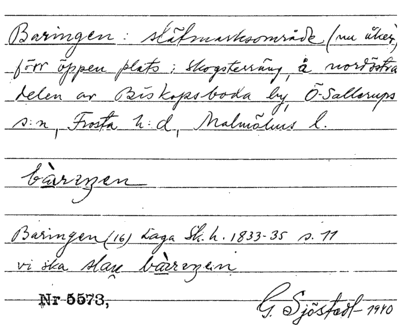 Baringen: slåtmarksområde (nu åker,
förr öppen plats i skogsterräng, å nordöstra
delen av Biskopsboda by, Ö-Sallerups
s:n, Frosta h:d, Malmöhus l.
bàrıŋen
Baringen (16) Laga Sk.h. 1833-35 s. 11
vi ska bàrıŋen
Nr 5573,
G. Sjöstedt-1940